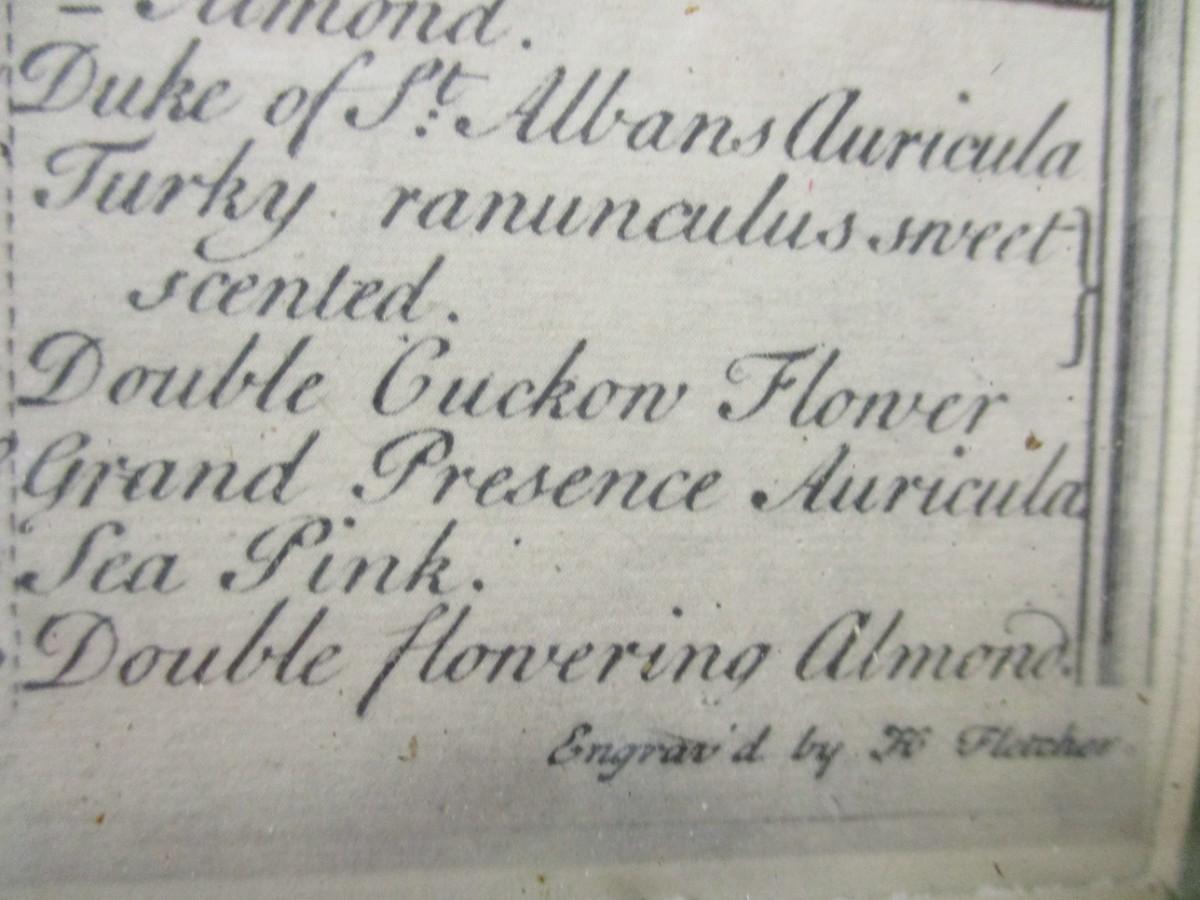 - Almond.
Duke of St. Albans Auricula
Turky ranunculus sweet
scented.
Double Cuckow Flower
Grand Presence Auricula
Sea Pink.
Double flowering Almond.
Engrav'd by H Fletcher